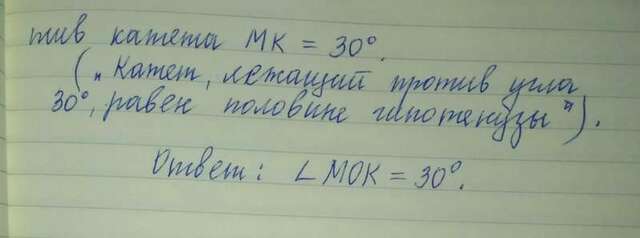 тив катета MK = 30°.
(„Катет, лежащий против угла
30°, равен половине гипотенузы“).
Ответ: ∠MOK = 30°.